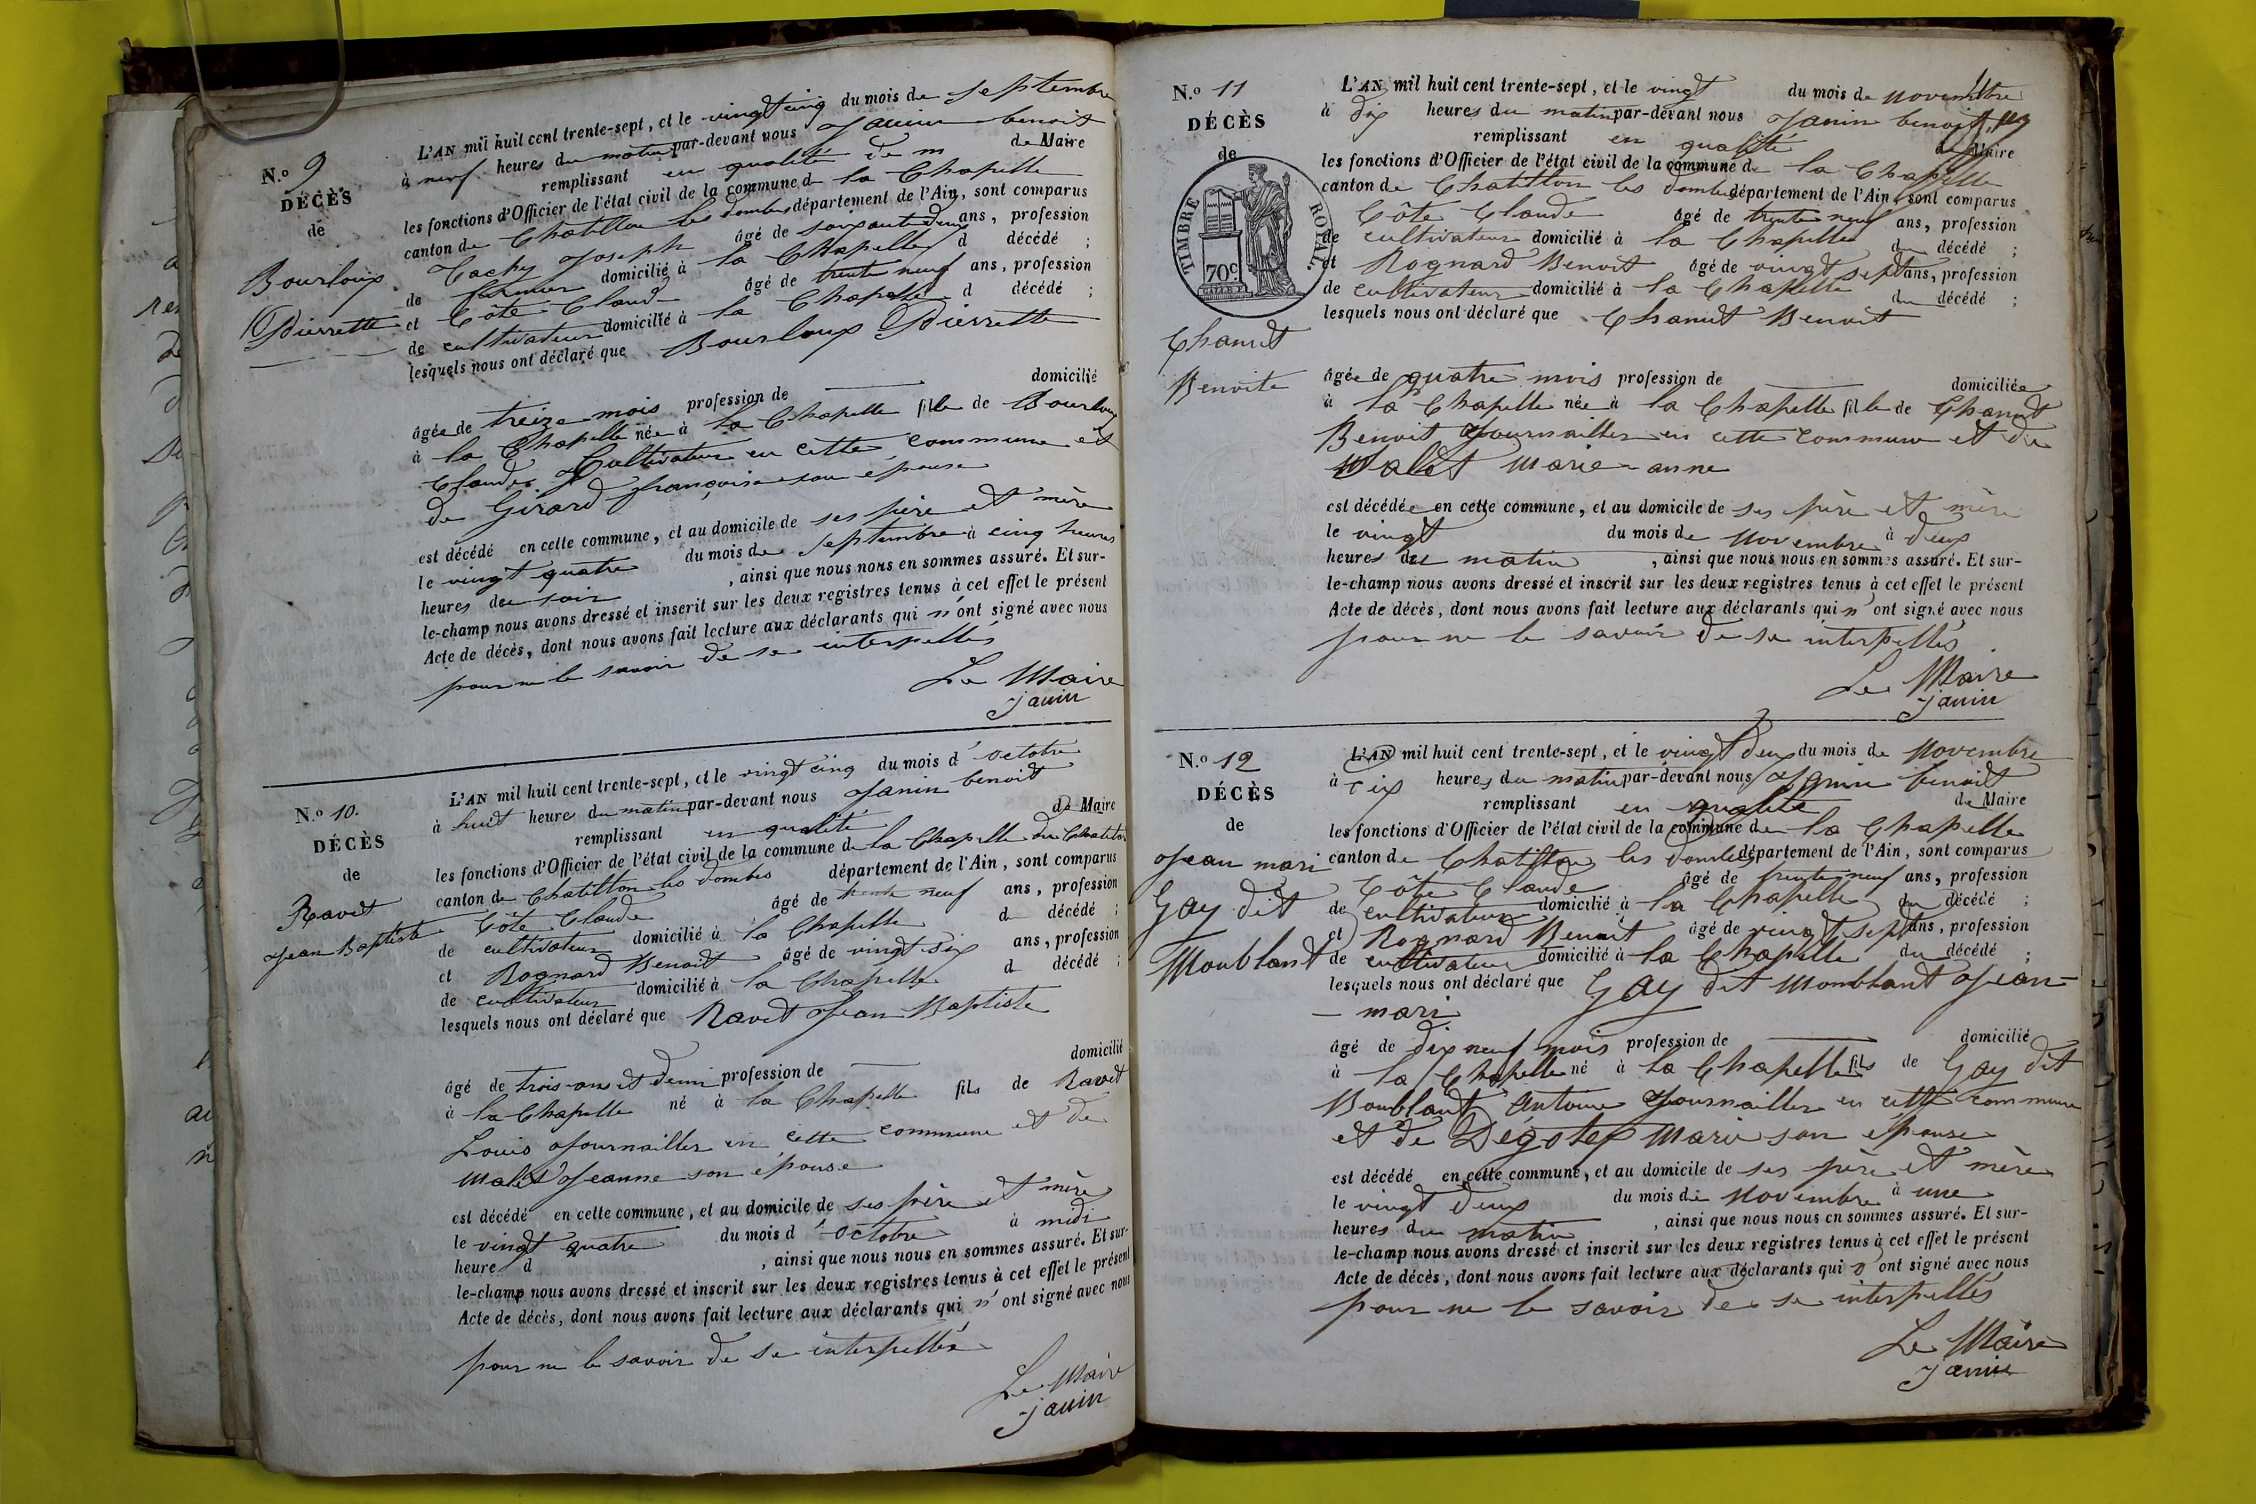 N.o 9
DÉCÈS
de
Bourloux
Pierrette
L'AN mil huit cent trente-sept, et le vingt cinq du mois de septembre
à neuf heures du matin par-devant nous Janin benoit
remplissant en qualité de m de Maire
les fonctions d'Officier de l'état civil de la commune d la Chapelle
canton de Chatillon les dombes département de l'Ain, sont comparus
Joseph âgé de soixante deux ans, profession
de fermier domicilié à la Chapelle d décédé ;
et Côte Claude âgé de trente neuf ans, profession
de cultivateur domicilié à la Chapelle d décédé ;
lesquels nous ont déclaré que Bourloux Pierrette
âgée de treize mois profession de domicilié
à la Chapelle née à la Chapelle fille de Bourloux
Claude Cultivateur en cette commune et
de Girard françoise son épouse
est décédé en cette commune, et au domicile de ses père et mère
le vingt quatre du mois de septembre à cinq heures
heures du soir , ainsi que nous nous en sommes assuré. Et sur-
le-champ nous avons dressé et inscrit sur les deux registres tenus à cet effet le présent
Acte de décès, dont nous avons fait lecture aux déclarants qui n'ont signé avec nous
pour ne le savoir de se interpellés
Le Maire
janin
N.o 10.
DÉCÈS
de
Ravet
Jean Baptiste
L'AN mil huit cent trente-sept, et le vingt cinq du mois d'octobre
à huit heure du matin par-devant nous Janin benoit
remplissant en qualité de Maire
les fonctions d'Officier de l'état civil de la commune de la Chapelle du Chatelard
canton de Chatillon les dombes département de l'Ain, sont comparus
Côte Claude âgé de trente neuf ans, profession
de cultivateur domicilié à la Chapelle d décédé ;
et Rognard Benoit âgé de vingt six ans, profession
de cultivateur domicilié à la Chapelle d décédé ;
lesquels nous ont déclaré que Ravet Jean Baptiste
âgé de trois ans et demi profession de domicilié
à la Chapelle né à la Chapelle fils de Ravet
Louis Journallier en cette commune et de
Malet Jeanne son épouse
est décédé en cette commune, et au domicile de ses père et mère
le vingt quatre du mois d'octobre à midi
heure d , ainsi que nous nous en sommes assuré. Et sur-
le-champ nous avons dressé et inscrit sur les deux registres tenus à cet effet le présent
Acte de décès, dont nous avons fait lecture aux déclarants qui n'ont signé avec nous
pour ne le savoir de se interpellés
Le Maire
janin
N.o 11
DÉCÈS
de
TIMBRE ROYAL.
70c.
Chanut
Benoite
L'AN mil huit cent trente-sept, et le vingt du mois de novembre
à dix heures du matin par-devant nous Janin benoit
remplissant en qualité de Maire
les fonctions d'Officier de l'état civil de la commune de la Chapelle
canton de Chatillon les dombes département de l'Ain, sont comparus
Côte Claude âgé de trente neuf ans, profession
de cultivateur domicilié à la Chapelle du décédé ;
et Rognard Benoit âgé de vingt sept ans, profession
de cultivateur domicilié à la Chapelle du décédé ;
lesquels nous ont déclaré que Chanut Benoit
âgée de quatre mois profession de domiciliée
à la Chapelle née à la Chapelle fille de Chanut
Benoit Journallier en cette commune et de
Malet marie-anne
est décédée en cette commune, et au domicile de ses père et mère
le vingt du mois de novembre à deux
heures du matin , ainsi que nous nous en sommes assuré. Et sur-
le-champ nous avons dressé et inscrit sur les deux registres tenus à cet effet le présent
Acte de décès, dont nous avons fait lecture aux déclarants qui n'ont signé avec nous
pour ne le savoir de se interpellés
Le Maire
janin
N.o 12
DÉCÈS
de
Jean mari
Gay dit
Moublant
L'AN mil huit cent trente-sept, et le vingt deux du mois de Novembre
à six heures du matin par-devant nous Janin benoit
remplissant en qualité de Maire
les fonctions d'Officier de l'état civil de la commune de la Chapelle
canton de Chatillon les dombes département de l'Ain, sont comparus
Côte Claude âgé de trente neuf ans, profession
de cultivateur domicilié à la Chapelle du décédé ;
et Rognard Benoit âgé de vingt sept ans, profession
de cultivateur domicilié à la Chapelle du décédé ;
lesquels nous ont déclaré que Gay dit Momblant Jean-
- mari
âgé de dix neuf mois profession de domicilié
à la Chapelle né à la Chapelle fils de Gay dit
Moublant Antoine Journallier en cette commune
et de Degotex Marie son épouse
est décédé en cette commune, et au domicile de ses père et mère
le vingt deux du mois de Novembre à une
heures du matin , ainsi que nous nous en sommes assuré. Et sur-
le-champ nous avons dressé et inscrit sur les deux registres tenus à cet effet le présent
Acte de décès, dont nous avons fait lecture aux déclarants qui n'ont signé avec nous
pour ne le savoir de se interpellés
Le Maire
janin